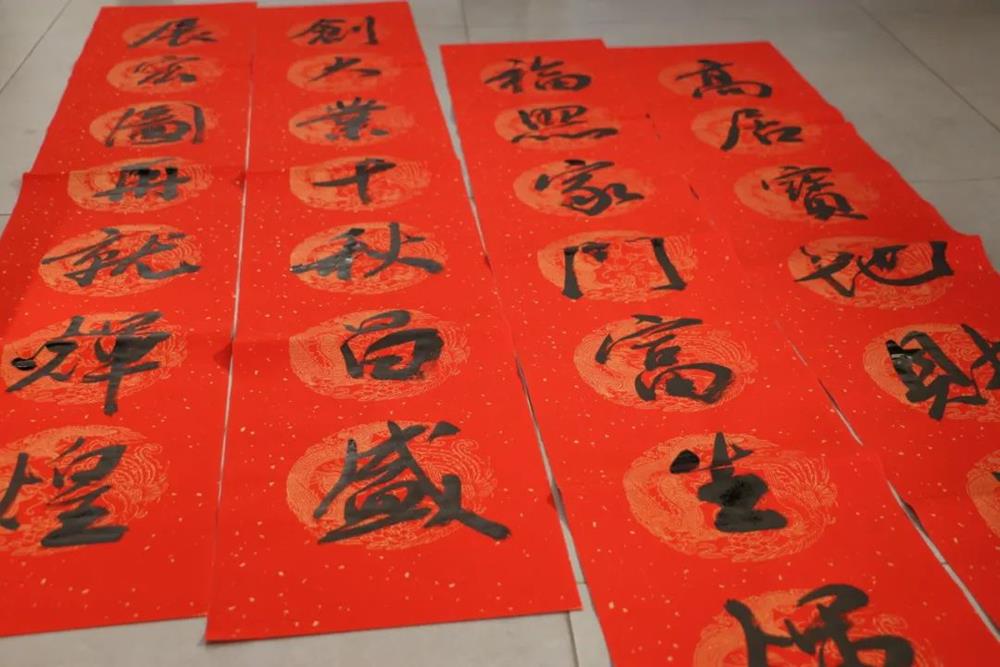 高居寶地財
福照家門富生
創大業千秋昌盛
展宏圖再就輝煌